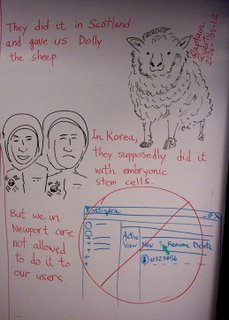 They did it in Scotland
and gave us Dolly
the sheep.
In Korea,
they supposedly did it
with embryonic
stem cells.
But we in
Newport are
not allowed
to do it to
our users.
Active
View
New Rename Delete
U123456